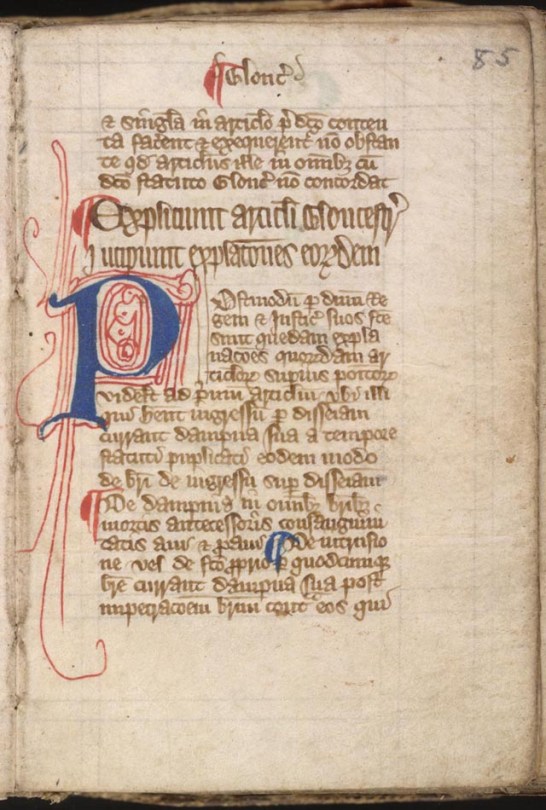 85
¶ Glouc̄
& sing̃la in articl̃o p̃dc̃o conten
ta facent & exequerent̃ nõ obstan
te qd̃ articlus ille in om̃ibz cũ
dc̃o statuto Glouc̄ nõ concordat
Expliciunt articl̃i Gloucestr̃
Incipiunt explac̃ones eorꝝdem
Postmodũ p dñm Re
gem & Justic̃ suos fc̃e
sunt quedam expla
nac̃oes quorꝝdam ar
ticlorꝝ superius poitorꝝ
videlt̃ ad p̃mũ articlm̃ vbi illi
qui hẽnt ingressũ p disseiam
currant dampna sua a tempore
statuti puplicati eodem modo
de br̃i de ingressu sup disseiam̃
¶ De dampnis in om̃ibz br̃ibz
mortis antecessoris consanguini
tatis aui & p̃aui ¶ De intrusio
ne vel de fc̃o p̱prio p quodcumqz
br̃e currant dampna sua post
impetrac̃oem br̃ium cont̃ eos qui